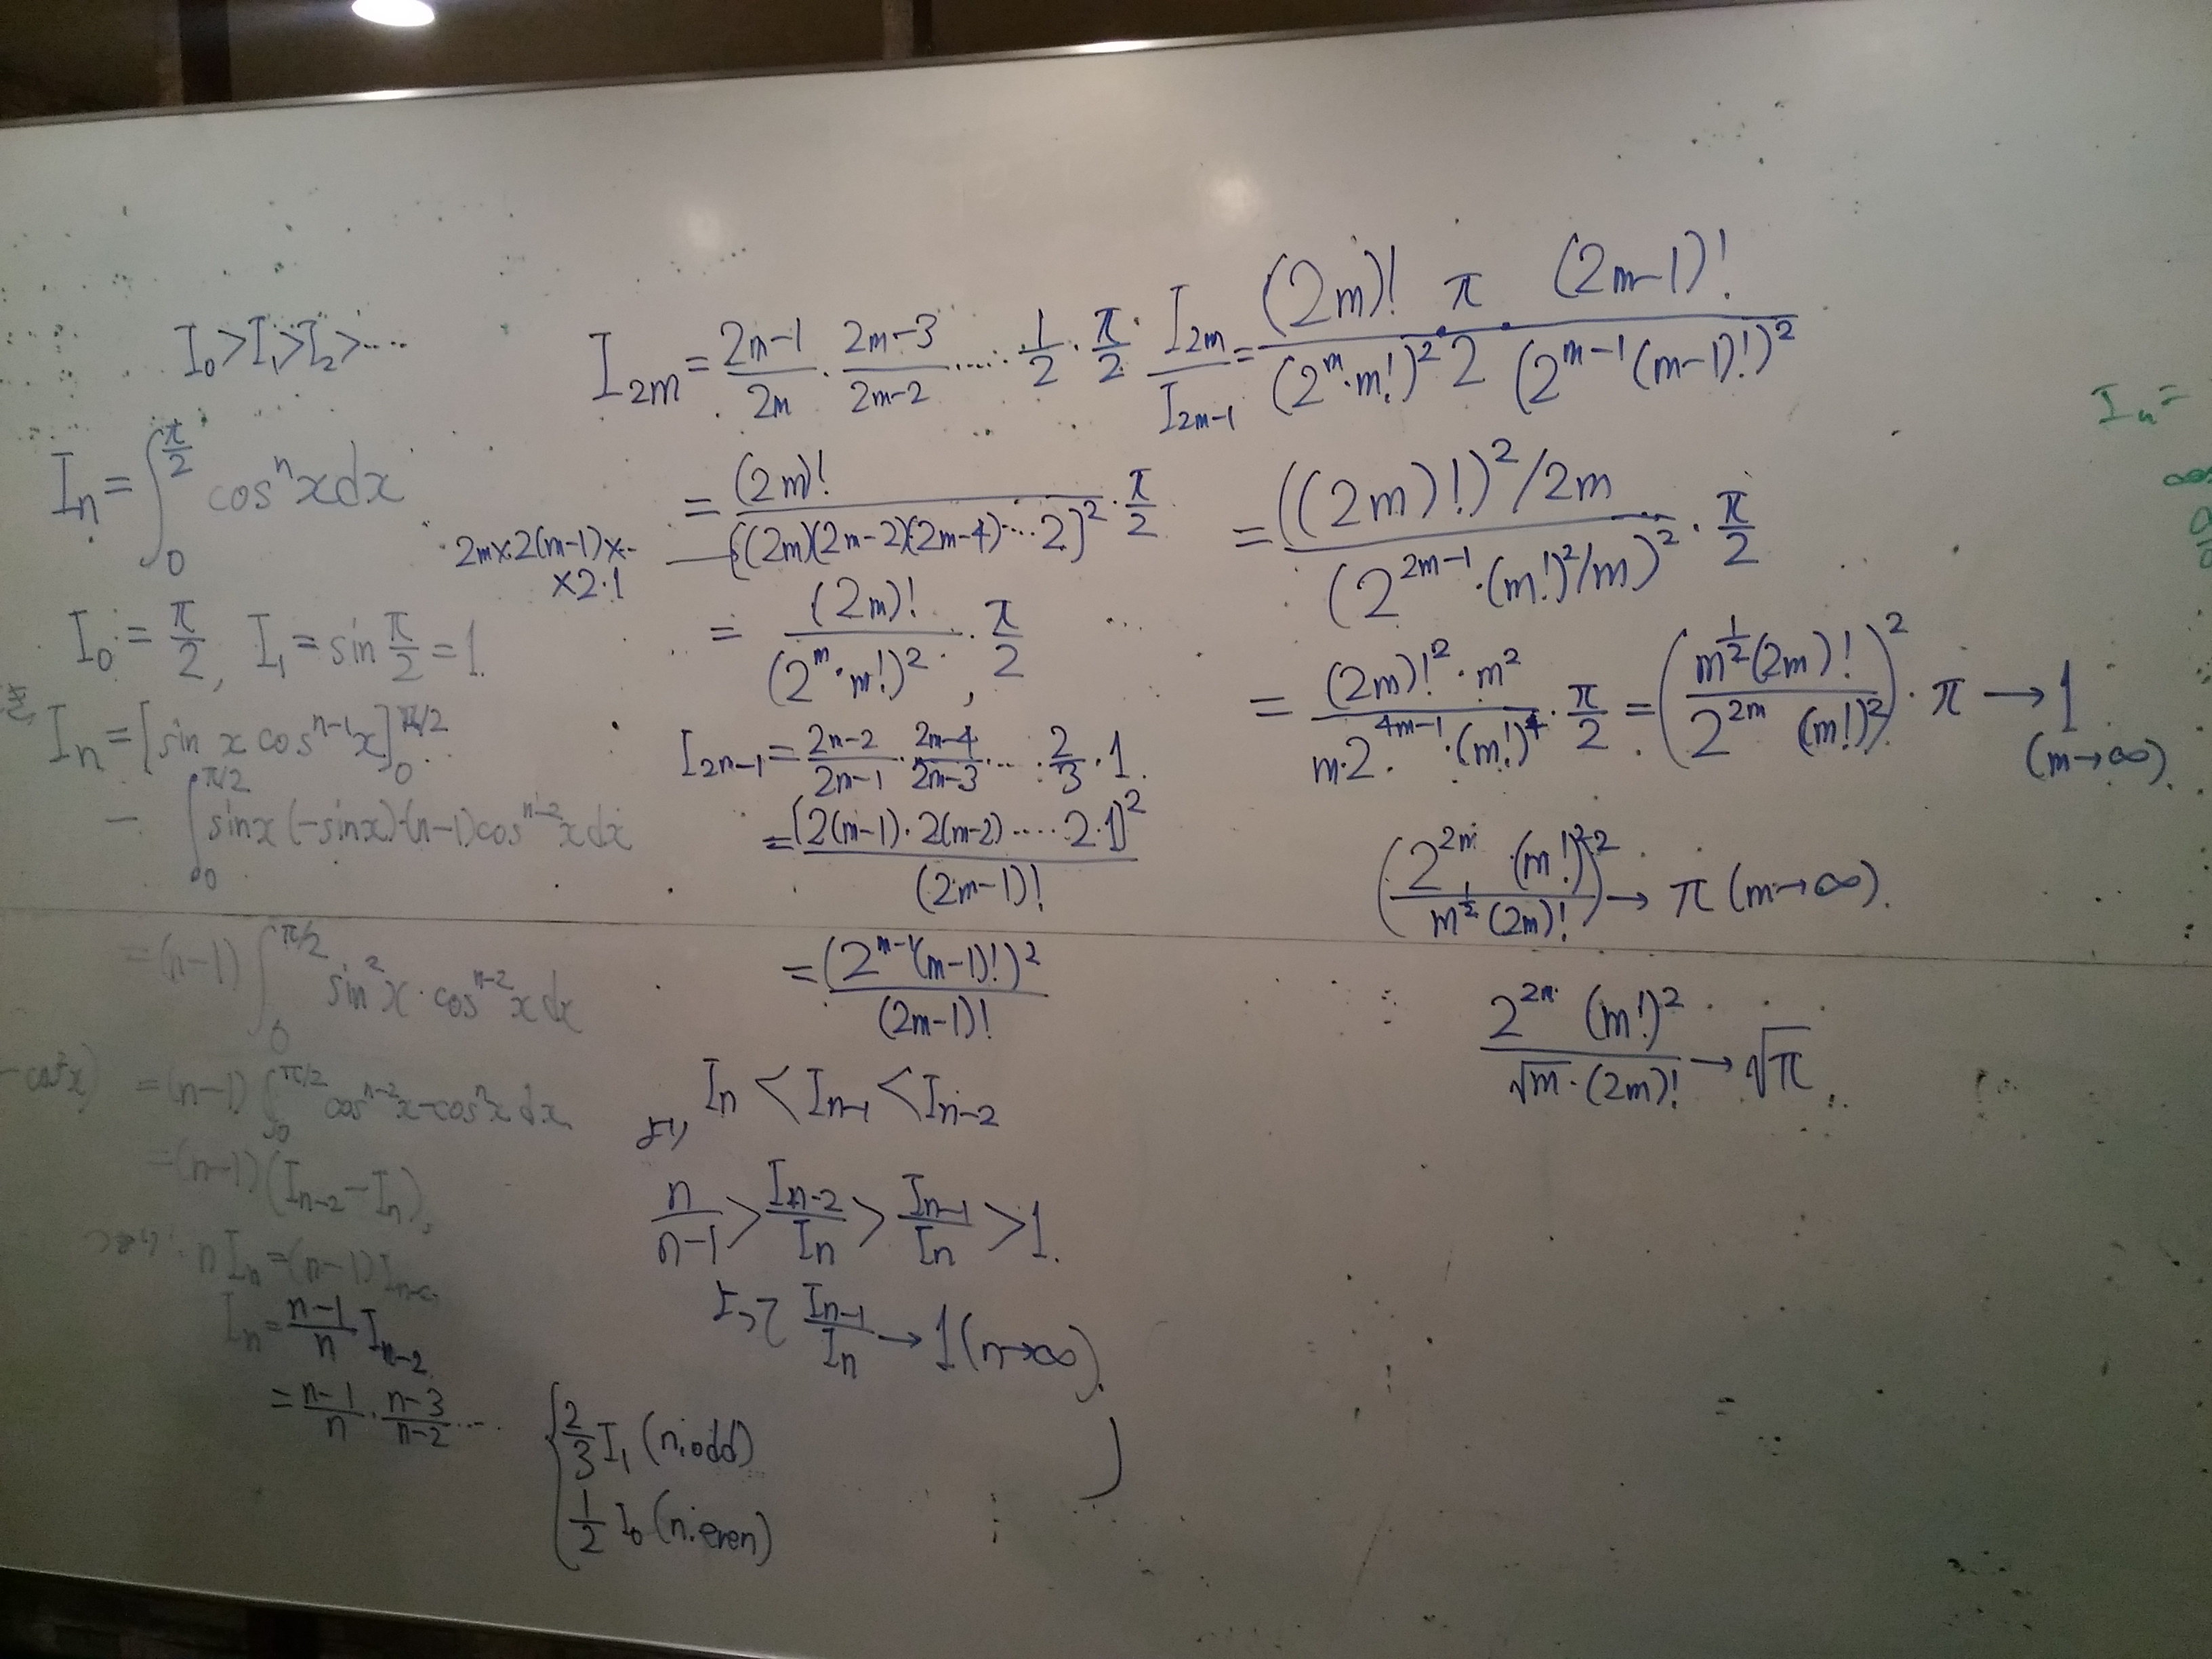 I₀>I₁>I₂>⋯
Iₙ = ∫₀^{π/2} cosⁿx dx
I₀ = π/2, I₁ = sin π/2 = 1.
Iₙ = [sin x cos^{n-1}x]₀^{π/2}
- ∫₀^{π/2} sinx(-sinx)·(n-1)cos^{n-2}x dx
= (n-1) ∫₀^{π/2} sin²x·cos^{n-2}x dx
-cos²x) = (n-1) ∫₀^{π/2} cos^{n-2}x-cosⁿx dx
= (n-1)(I_{n-2}-Iₙ),
nIₙ = (n-1)I_{n-2}
Iₙ = (n-1)/n I_{n-2}
= (n-1)/n · (n-3)/(n-2) ⋯ { 2/3 I₁ (n:odd)
1/2 I₀ (n:even)
I_{2m} = (2m-1)/2m · (2m-3)/(2m-2) ⋯ 1/2 · π/2
= (2m)!/{(2m)(2m-2)(2m-4)⋯2}² · π/2
2m×2(m-1)×⋯
×2·1
= (2m)!/(2^m·m!)² · π/2,
I_{2m-1} = (2m-2)/(2m-1) · (2m-4)/(2m-3) ⋯ 2/3 · 1.
= {2(m-1)·2(m-2)⋯2·1}²/(2m-1)!
= (2^{m-1}(m-1)!)²/(2m-1)!
Iₙ < I_{n-1} < I_{n-2}
より
n/(n-1) > I_{n-2}/Iₙ > I_{n-1}/Iₙ > 1.
よって I_{n-1}/Iₙ → 1 (n→∞).
I_{2m}/I_{2m-1} = (2m)!/(2^m·m!)² · π/2 · (2m-1)!/(2^{m-1}(m-1)!)²
= ((2m)!)²/2m/(2^{2m-1}·(m!)²/m)² · π/2
= (2m)!²·m²/(m·2^{4m-1}·(m!)⁴) · π/2 = (m^{1/2}(2m)!/(2^{2m} (m!)²))² · π → 1
(m→∞).
(2^{2m} (m!)²/(m^{1/2}(2m)!))² → π (m→∞).
2^{2m} (m!)²/(√m·(2m)!) → √π.
Iₙ =
cos